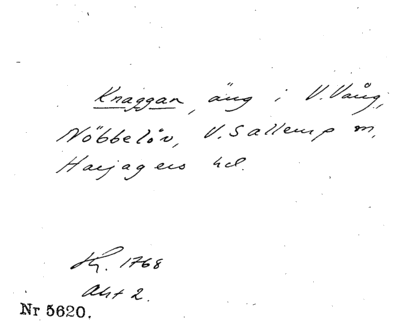 Knaggan, äng i V.Vång,
Nöbbelöv, V.Sallerup m,
Harjagers hd.
Hy. 1768
Akt 2.
Nr 5620.